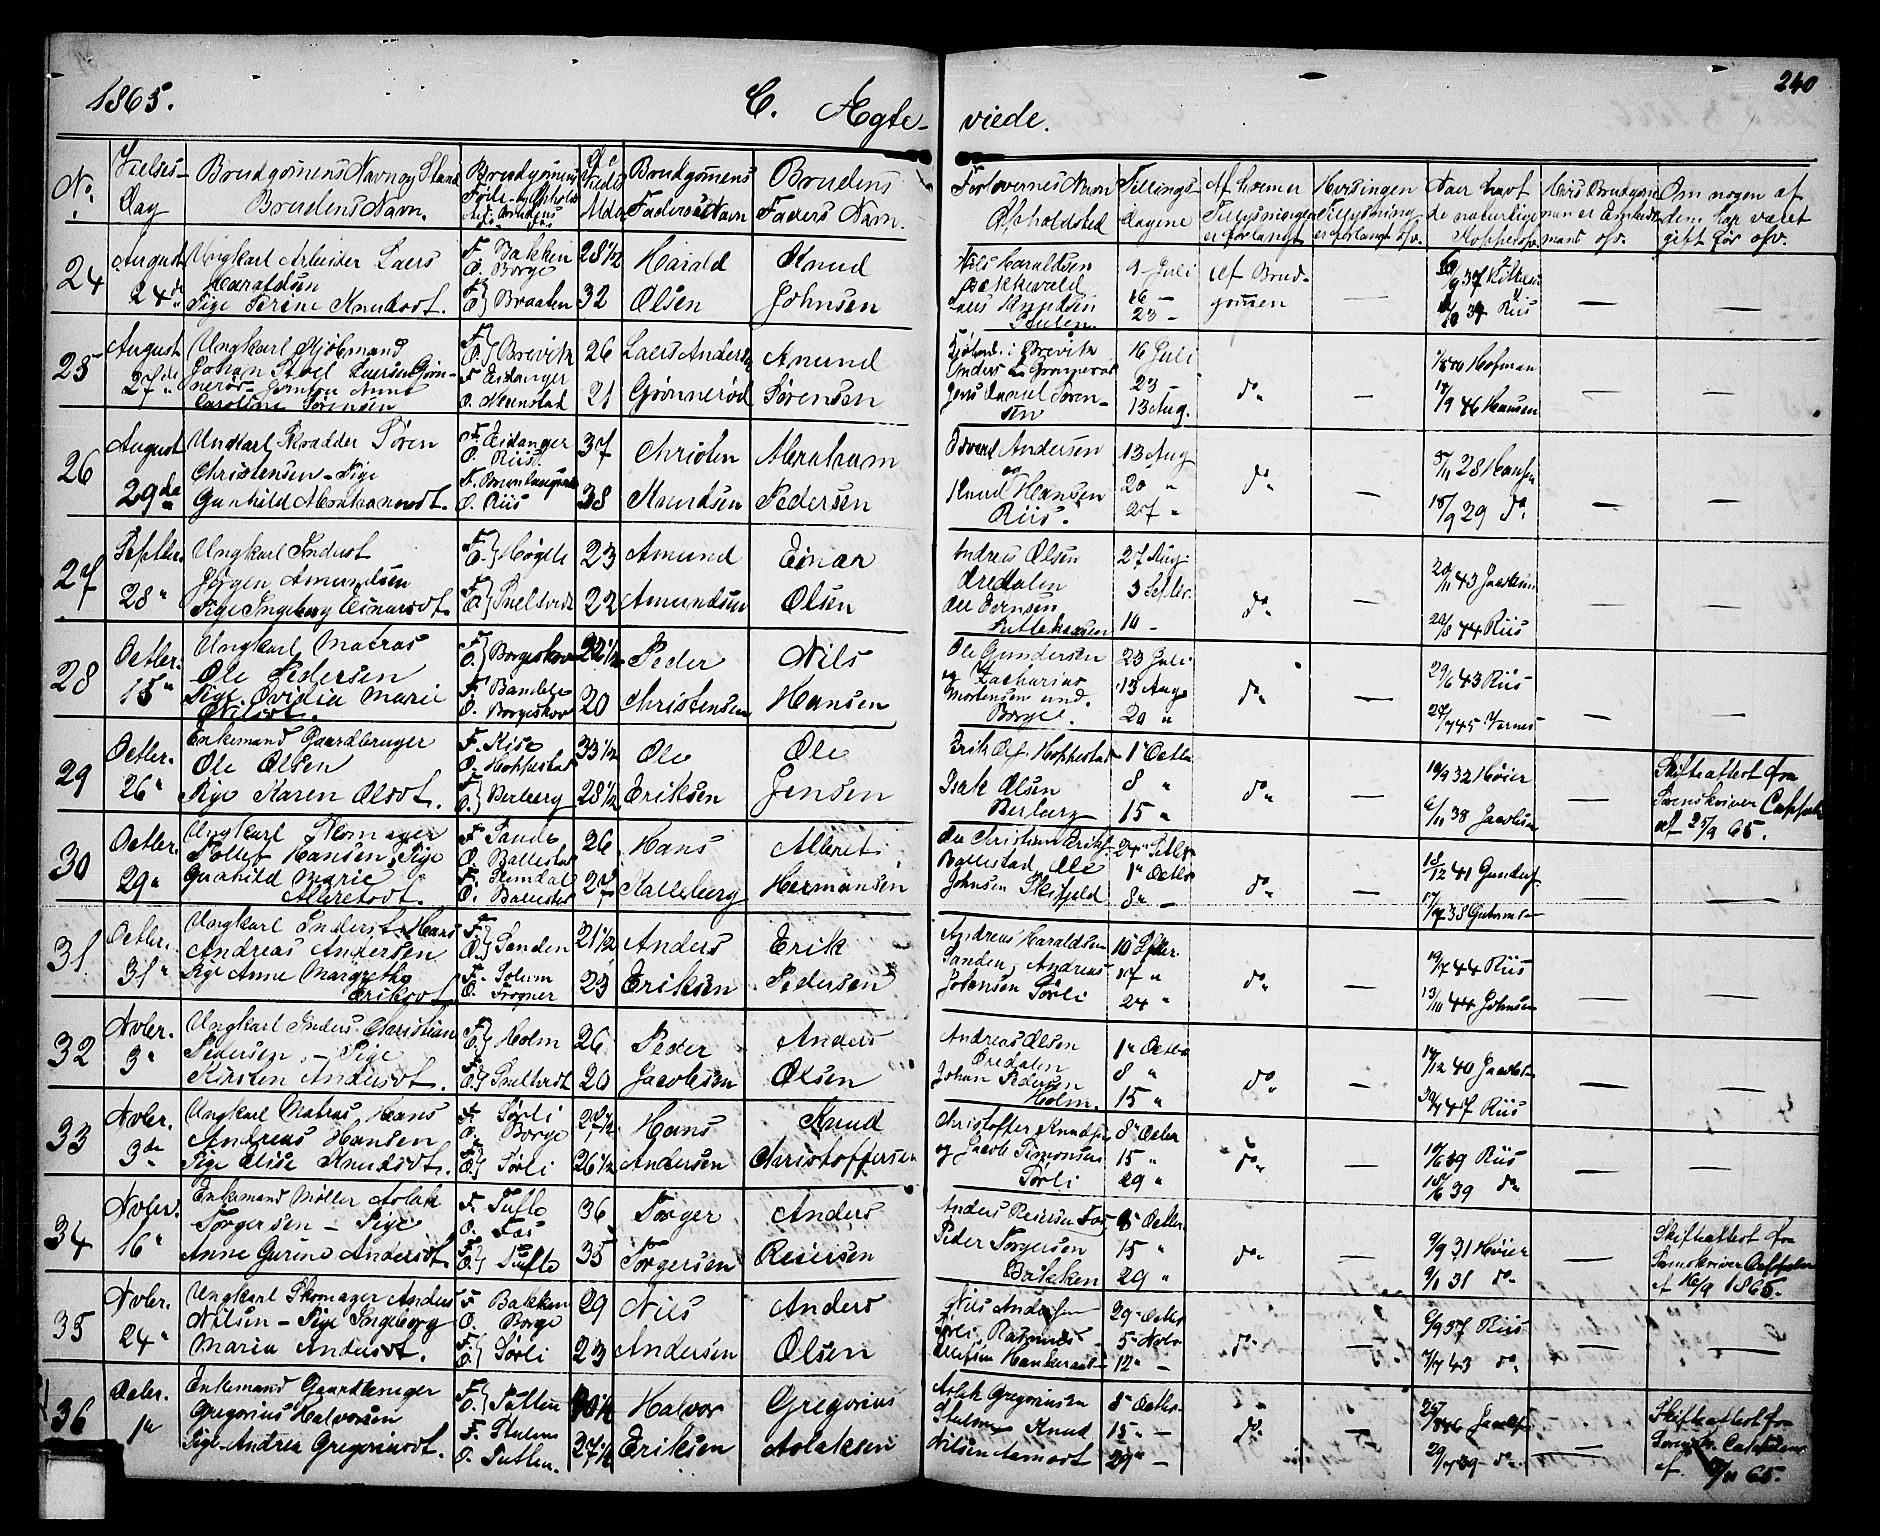 1865. C. Ægte- viede. 240
No. Vielses- Dag Brudgomens Navn og Stand Brudens Navn. Brudgomens Føde- og Opholds De Viedes Alder Brudgomens Faders Navn Brudens Faders Navn. Forlovernes Navn Opholdsted Tillysnings dagene Af hvem er Tillysningen er forlangt Naar havt de naturlige Kopper Om nogen af dem har været gift før
24 August 24de Ungkarl Arbeider Laers Haraldsen Pige Serine Knudsdt. F. Bakken O. Borge F O} Braaten 28½ 32 Harald Olsen Knud Johnsen Nils Haraldsen Bekkevold Laers Knudsen Stulen 9 Juli 16 – 23 – Af Brud- gommen — 39 Riis — —
25 August 27de Ungkarl Kjøbmand Johan Laersen Grøn- nerød – Jomfru Anne Caroline Sørensen F O} Brevik F Eidanger O. Nenstad 26 21 Laers Anders Grønnerød Amund Sørensen Kjøbmd. i Brevik Anders L Grønnerød Jens Daniel Søren- sen 16 Juli 23 – 13 Aug. do — 40 Hofman 17/9 46 Hansen — —
26 August 29de Ungkarl Skradder Søren Christensen – Pige Gunhild Abrahamsdt. F. Eidanger O. Riis F. Brunlaugnæs O. Riis 37 38 Christen Knudsen Abraham Pedersen Edvard Andersen og Knud Hansen Riis. 13 Aug 20 " 27 " do — 28 Hansen 18/9 29 do — —
27 Septbr. 28" Ungkarl Inderst Jørgen Amundsen Pige Ingeborg Einarsdt. F O} Høgli F O} Snelvidt 23 22 Amund Amundsen Einar Olsen Andreas Olsen Øredalen Ole Jørnsen 27 Aug. 3 Septbr. 10 – do — 20/11 43 Jacobsen 20/8 44 Riis — —
28 Octbr. 15" Ungkarl Matros Ole Pedersen Pige Ovidia Marie Nilsdt. F O.} Borgeskov F. Bamble O. Borgeskov 22½ 20 Peder Christensen Nils Hansen Ole Gundersen og Zacharias Mortensen und. Borge. 23 Juli 13 Aug 20 " do — 29/6 43 Riis 45 — —
29 Octbr. 26" Enkemand Gaardbruger Ole Olsen Pige Karen Olsdt. F. Kise O. Hoppestad F O.} Berberg 33½ 28½ Ole Eriksen Ole Jensen Erik Ols. Hoppestad Isak Olsen Berberg 1" Octbr 8 " 15 " do — 19/9 32 Høier 6/11 38 Jacobsen — Skifteattest fra Sorenskriver Cappelen af 25/9 65.
30 Octbr. 29" Ungkarl Skomager Hansen, Pige Gunhild Marie Albretsdt. F. Sande O. Ballestad F. Slemdal O. Ballestad 26 27 Hans Kalleberg Albret Hermansen Ole Christian Eriks. Ballestad, Ole Johnsen Skifjeld 24" Septbr 1" Octbr 8" – do — 18/12 41 Gunders. 38 — —
31 Octbr. 31" Ungkarl Inderst Hans Andreas Andersen Pige Anne Margrethe Eriksdt F. O.} Sanden F. Solum O. Frogner 21½ 23 Anders Eriksen Erik Pedersen Andreas Haraldsen Sanden, Andreas Johnsen Sørli 10" Septbr. 17 " 24 " do — 19/7 44 Riis 13/11 44 Johnsen — —
32 Novbr. 3" Ungkarl Inders. Christian Pedersen, – Pige Kirsten Andersdt. F O.} Holm F O} Snelvidt 26 20 Peder Jacobsen Anders Olsen Andreas Olsen Øredalen Johan Pedersen Holm. 1" Octbr 8 " 15 " do — 17/12 40 Jacobs. 30/4 47 Riis — —
33 Novbr. 3de Ungkarl Matros Hans Andreas Hansen Pige Elise Knudsdt. F. Sørli O. Borge F O} Sørli 27½ 26½ Hans Andersen Knud Christoffersen Christoffer Knudsen og Jacob Simonsen Sørli 8" Octbr 15 " 29 " do — 19/6 39 Riis 18/6 39 do — —
34 Novbr. 16" Enkemand Møller Aslak Torgersen – Pige Anne Gurine Andersdt F. Tufte O. Fos F O} Tufte 36 35 Torger Torgersen Anders Reiersen Anders Reiersen Fos Peder Torgersen Bakken 8" Octbr. 15 " 29 " do — 9/9 31 Høier 9/1 31 do — Skifteattest fra Sorenskriver Cappelen af 16/9 1865.
35 Novbr. 24" Ungkarl Skomager Anders Nilsen – Pige Ingeborg Maria Andersdt. F Bakken O. Borge F O} Sørli 29 23 Nils Andersen Anders Olsen Nils Andersen Sørli, Rasmus 29" Octbr 5" Novbr 12" – do — 6/9 37 Riis 7/7 43 do — —
36 Decbr. 1" Enkemand Gaardbruger Gregorius Halvorsen Pige Andrea Gregoriusdt. F O} Tutten F. Stulen O. Tutten. 27½ Halvor Eriksen Gregorius Aslaksen Aslak Gregoriusen Stulen, Knud Nilsen Aamodt 8" Octbr. 15" – 29" – do — Jacobsen 29/7 39 do. — Skifteattest fra Sorenskr. Cappelen af 65.